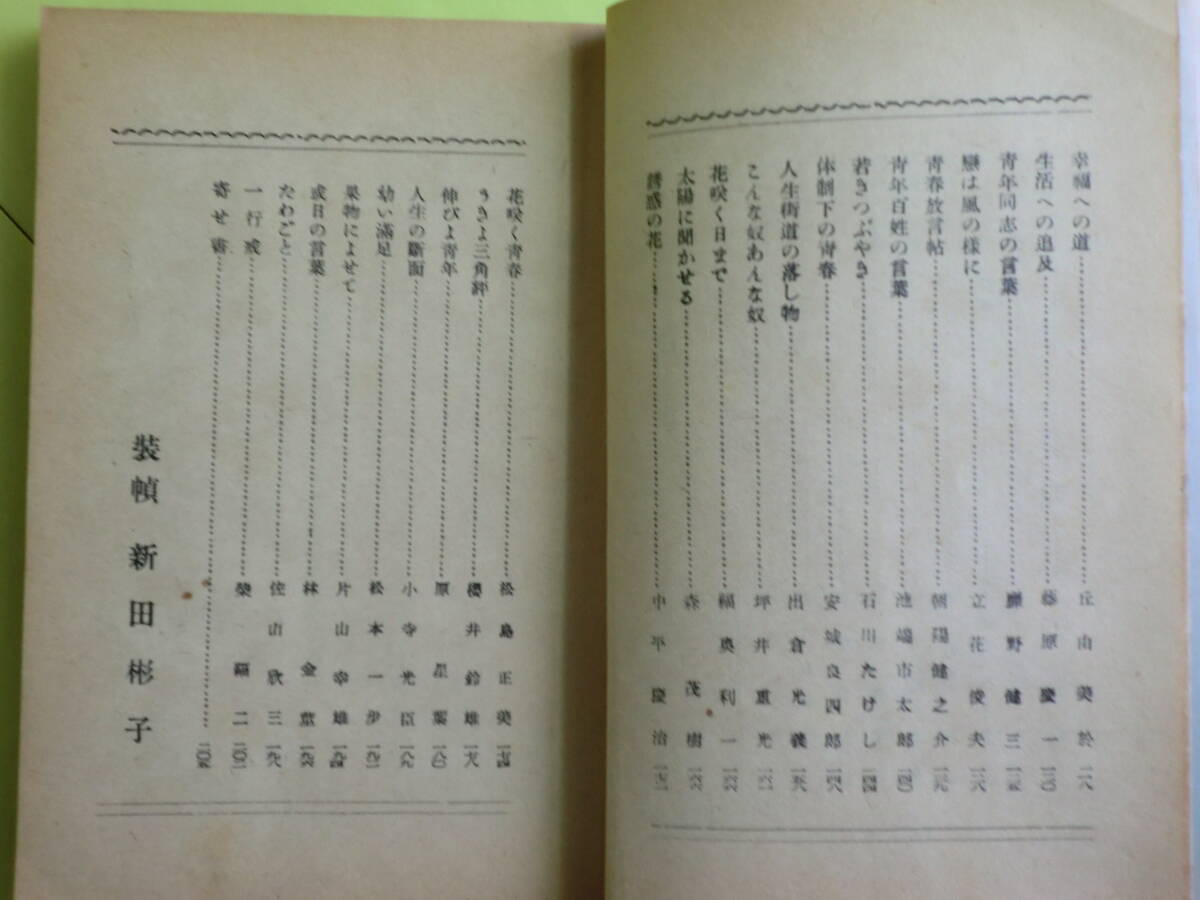 幸福への道 丘山美於 一一八
生活への追及 藤原慶一 一二〇
青年同志の言葉 野健三 一二五
戀は風の様に 立花俊夫 一二八
青春放言帖 朝陽健之介 一三九
青年百姓の言葉 池端市太郎 一四〇
若きつぶやき 石川たけし 一四四
体制下の青春 安城良四郎 一四八
人生街道の落し物 出倉光義 一五八
こんな奴あんな奴 坪井重光
花咲く日まで 福奥利一
太陽に聞かせる 森茂樹
誘惑の花 中平慶治
花咲く青春 松島正美 一七四
うきよ三角評 櫻井鈴雄 一七八
伸びよ青年 原星葉 一八〇
人生の斷面 小寺光臣 一八九
幼い滿足 松本一歩
果物によせて 片山幸雄 一九四
或日の言葉 林金童
たわごと 佐山欣三
一行戒 二
寄せ書 二〇五
裝幀 新田彬子